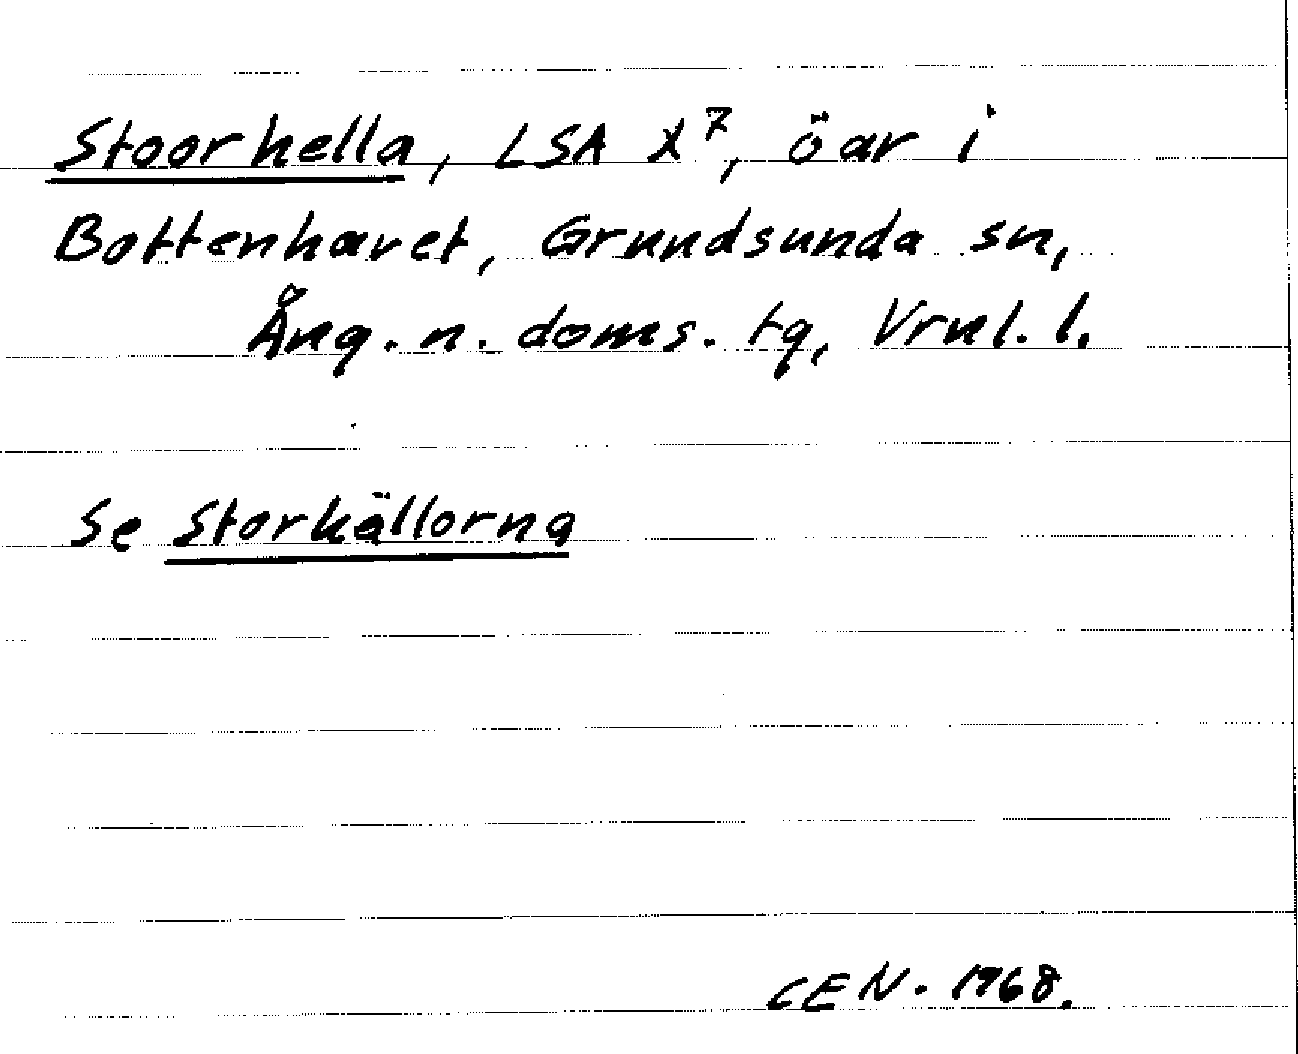 Stoorhella, LSA X7, öar i
Bottenhavet, Grundsunda sn,
Ång. n. doms. tg, Vrnl. l.
Se Storkällorna
CEN. 1968.